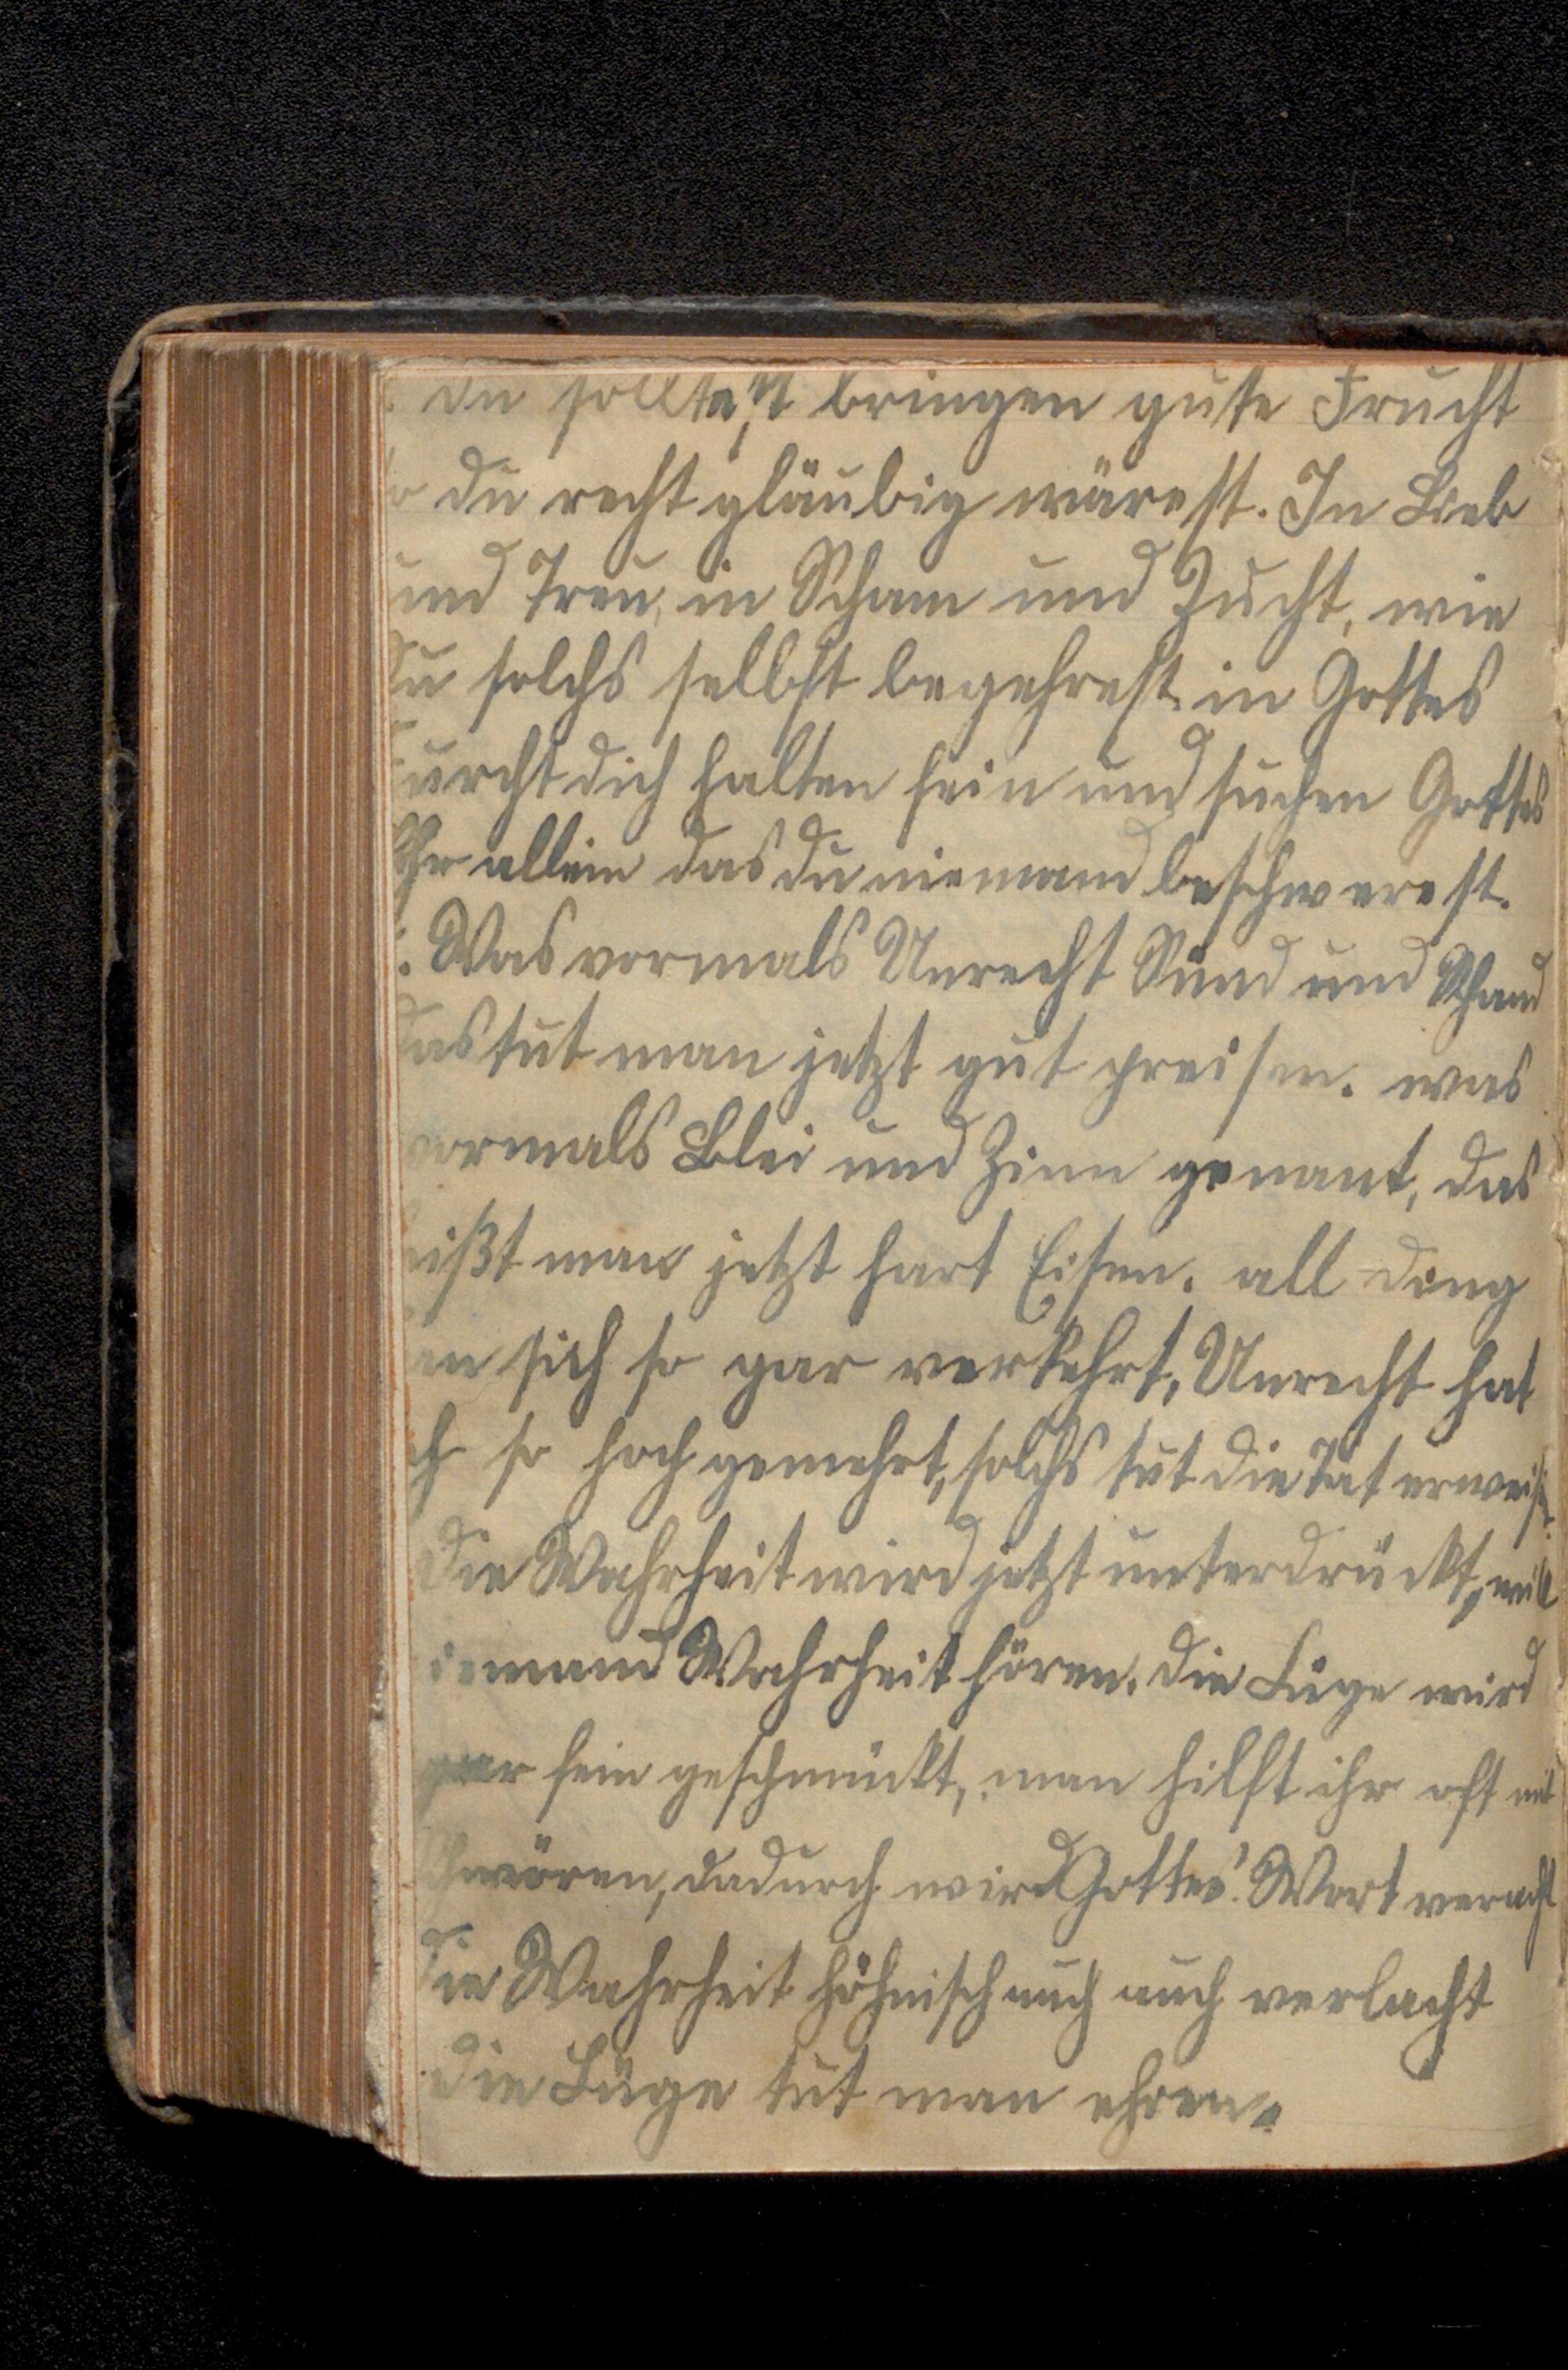 du solltest bringen gute Frucht
so du recht gläubig wärest. In Lieb
und Treu, in Scham und Zucht, wie
du solchs selbst begehrest in Gottes
Furcht dich halten fein und suchen Gottes
Ehr allein das du niemand beschwerest.
: Was vormals Unrecht Sünd und Schand
das tut man jetzt gut preisen. was
vormals Blei und Zinn genant, das
heißt man jetzt hart Eisen. all ding
en sich so gar verkehrt, Unrecht hat
ch so hoch gemehrt, solchs tut die Tat erweisen.
Die Wahrheit wird jetzt unterdrückt, will
iemand Wahrheit hören. die Lüge wird
gar fein geschmückt, man hilft ihr oft mit
schwören, dadurch wird Gottes Wort veracht
die Wahrheit höhnisch auch auch verlacht
die Lüge tut man ehren.